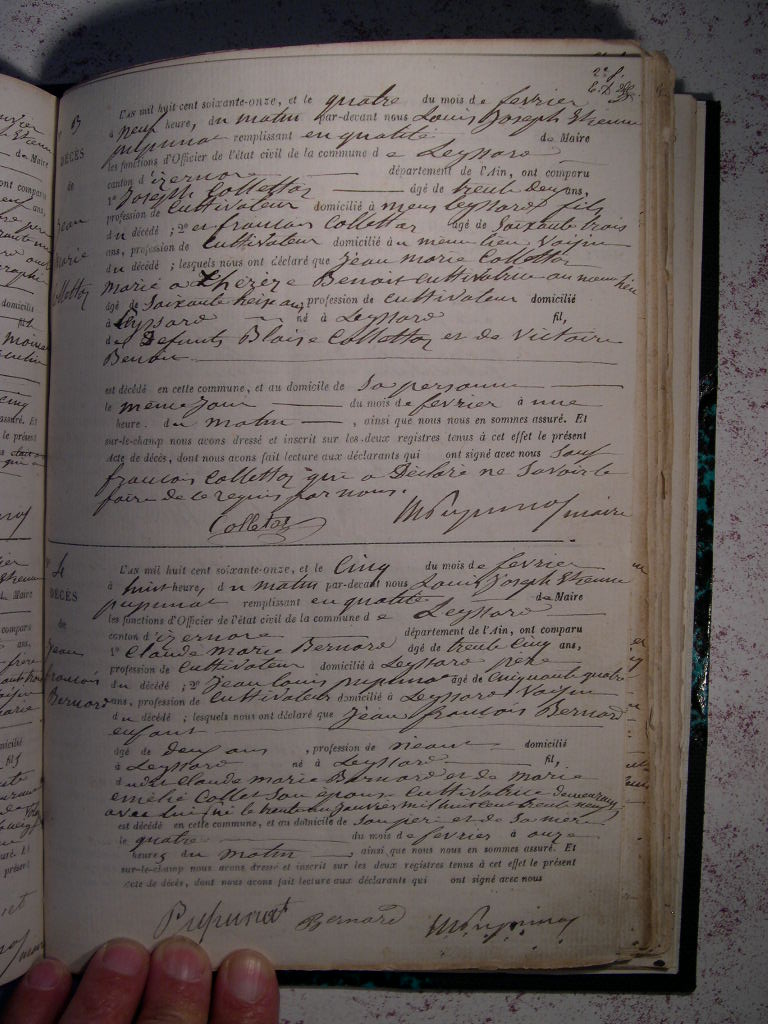 L'AN mil huit cent soixante-onze, et le quatre du mois de fevrier
à neuf heure, du matin par-devant nous Louis Joseph Etienne
pupunat remplissant en qualité de Maire
les fonctions d'Officier de l'état civil de la commune de Leyssard
canton d'izernore département de l'Ain, ont comparu
1° Joseph Collettaz âgé de trente deux ans,
profession de Cultivateur domicilié à meme Leyssard fils
du décédé ; 2° en francois Collettaz âgé de Soixante trois
ans, profession de Cultivateur domicilié à u meme lieu Voisin
du décédé ; lesquels nous ont déclaré que Jean marie Collettaz
marie a thérèze Benoit Cultivatrice au meme lieu
âgé de Soixante seize ans, profession de Cultivateur domicilié
à Leyssard né à Leyssard fil,
de Defunts Blaise Collettaz et de Victoire
Benoit
est décédé en cette commune, et au domicile de Sa personne
le meme jour du mois de fevrier à une
heure du matin, ainsi que nous nous en sommes assuré. Et
sur-le-champ nous avons dressé et inscrit sur les deux registres tenus à cet effet le présent
Acte de décès, dont nous avons fait lecture aux déclarants qui ont signé avec nous Sauf
francois Collettaz qui a Déclaré ne Savoir le
faire de ce requis par nous.
Collettaz maire
4
DÉCÈS
de
Jean
francois
Bernard
L'AN mil huit cent soixante-onze, et le Cinq du mois de fevrier
à huit heure, du matin par-devant nous Louis Joseph Etienne
pupunat remplissant en qualité de Maire
les fonctions d'Officier de l'état civil de la commune de Leyssard
canton d'izernore département de l'Ain, ont comparu
1° Claude marie Bernard âgé de trente Cinq ans,
profession de Cultivateur domicilié à Leyssard pere
du décédé ; 2° Jean Louis pupunat âgé de Cinquante quatre
ans, profession de Cultivateur domicilié à Leyssard Voisin
du décédé ; lesquels nous ont déclaré que Jean francois Bernard
enfant
âgé de deux ans, profession de néant domicilié
à Leyssard né à Leyssard fil,
de Claude marie Bernard et de marie
emélie Collet Son épouse Cultivatrice demeurant
avec lui né le trente un Janvier mil huit cent
est décédé en cette commune, et au domicile de Son pere et de Sa mere
le quatre du mois de fevrier à onze
heures du matin, ainsi que nous nous en sommes assuré. Et
sur-le-champ nous avons dressé et inscrit sur les deux registres tenus à cet effet le présent
Acte de décès, dont nous avons fait lecture aux déclarants qui ont signé avec nous
Pupunat Bernard